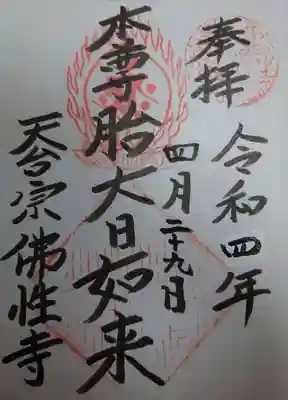 奉拝
令和四年
四月二十九日
本尊胎大日如来
天台宗佛性寺